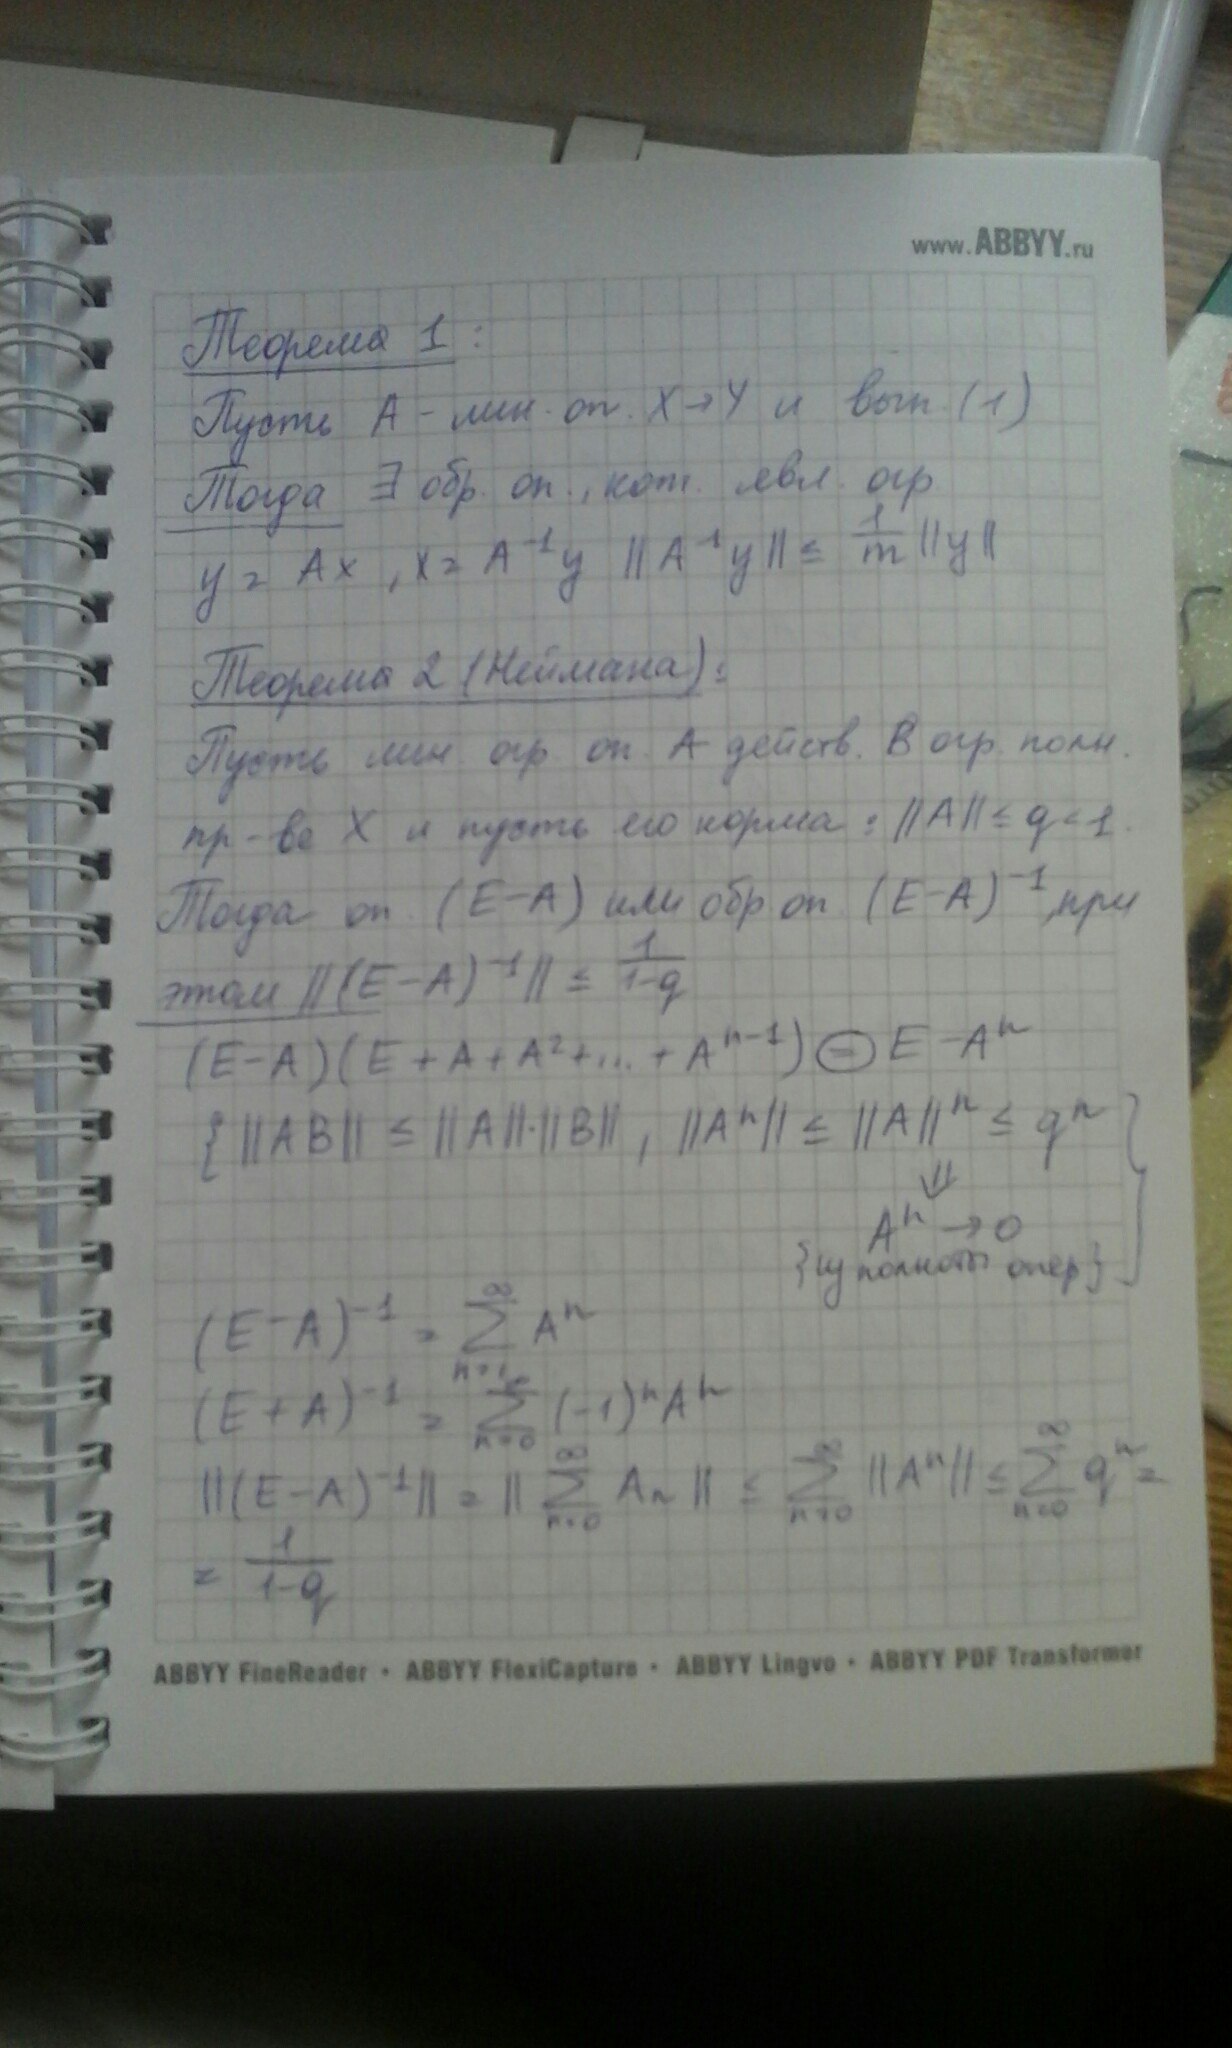 www.ABBYY.ru
Теорема 1:
Пусть A - лин. оп. X→Y и вып. (1)
Тогда ∃ обр. оп., кот. явл. огр
y = Ax, x = A⁻¹y ||A⁻¹y|| ≤ 1/m ||y||
Теорема 2 (Неймана):
Пусть лин. огр. оп. A действ. В огр. полн.
пр-ве X и пусть его норма: ||A|| ≤ q < 1.
Тогда оп. (E-A) или обр оп. (E-A)⁻¹, при
этом ||(E-A)⁻¹|| ≤ 1/(1-q)
(E-A)(E+A+A²+...+Aⁿ⁻¹) = E-Aⁿ
{||AB|| ≤ ||A||·||B||, ||Aⁿ|| ≤ ||A||ⁿ ≤ qⁿ
⇓
Aⁿ → 0
{из полноты опер} }
(E-A)⁻¹ = ∑_{n=1}^{∞} Aⁿ
(E+A)⁻¹ = ∑_{n=0}^{∞} (-1)ⁿAⁿ
||(E-A)⁻¹|| = ||∑_{n=0}^{∞} Aₙ|| ≤ ∑_{n=0}^{∞} ||Aⁿ|| ≤ ∑_{n=0}^{∞} qⁿ =
= 1/(1-q)
ABBYY FineReader • ABBYY FlexiCapture • ABBYY Lingvo • ABBYY PDF Transformer